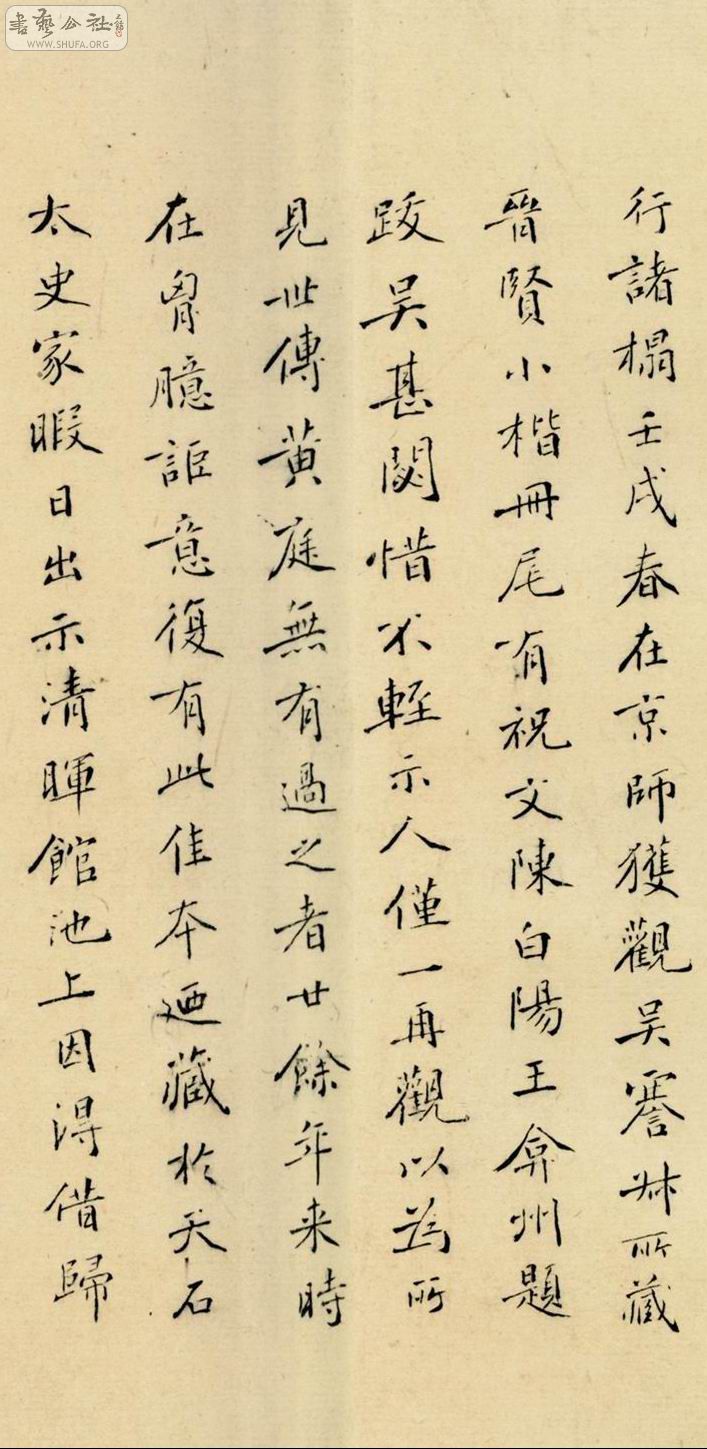 書藝公社
WWW.SHUFA.ORG
行諸榻壬戌春在京師獲觀吳謇叔所藏
晉賢小楷冊尾有祝文陳白陽王弇州題
跋吳甚閟惜不輕示人僅一再觀以為所
見世傳黃庭無有過之者廿餘年來時
在胷臆詎意復有此佳本迺藏於天石
太史家暇日出示清暉館池上因得借歸